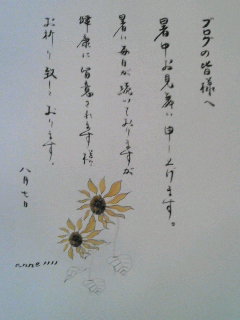 ブログの皆様へ
暑中お見舞い申し上げます。
暑い毎日が続いておりますが
健康に留意されます様
お祈り致しております。
八月七日